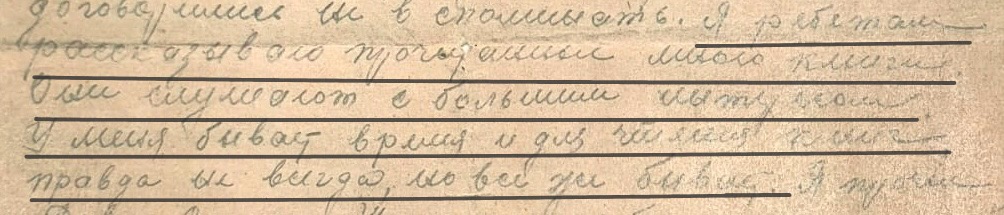 договорились не вспоминать. Я ребятам
рассказываю прочитанные мною книги.
Они слушают с большим
У меня бывает время и для чтения книг
правда не всегда, но все же бывает. Я